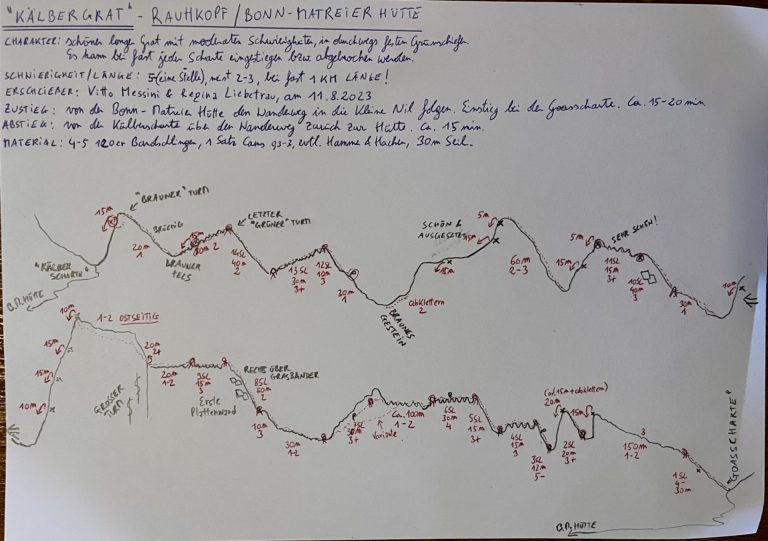 "KÄLBERGRAT" - RAUHKOPF/BONN-MATREIER HÜTTE
CHARAKTER: schöner langer Grat mit moderaten Schwierigkeiten, in durchwegs festen Grünschiefer.
Es kann bei fast jeder Scharte eingestiegen bzw abgebrochen werden.
SCHWIERIGKEIT/LÄNGE: 5-(eine Stelle), meist 2-3, bei fast 1 KM LÄNGE!
ERSCHLIEßER: Vitto Messini & Regina Liebetrau, am 11.8.2023
ZUSTIEG: von der Bonn-Matreier Hütte den Wanderweg in die Kleine Nil folgen. Einstieg bei der Goasscharte. Ca. 15-20 min
ABSTIEG: von der Kälberscharte über den Wanderweg zurück zur Hütte. Ca. 15 min.
MATERIAL: 4-5 120er Bandschlingen, 1 Satz Cams 0,3-3, evtl. Hammer & Hacken, 30m Seil.
"BRAUNER" TURM
15m
BRÜCHIG
20m
1
BRAUNER
FELS
15m
20m 2
LETZTER
"GRÜNER" TURM
14SL
40m
2
13SL
30m
3+
12SL
10m
3
30m
1
BRAUNES
GESTEIN
abklettern
2
SCHÖN &
AUSGESETZT
15m
15m
5m
60m
2-3
15m
5m
SEHR SCHÖN!
11SL
15m
3+
10SL
40m
3
30m
1
10m
"KÄLBER
SCHARTE"
B.M.HÜTTE
10m
1-2 OSTSEITIG
15m
15m
10m
GROSSER
TURM
20m
2+
20m
1-2
9SL
15m
3
Erste
Plattenwand
RECHTS ÜBER
GRASBÄNDER
8SL
60m
2
10m
3
30m
1-2
30m
3+
Variante
ca.100m
1-2
6SL
30m
4
5SL
15m
3+
4SL
15m
3
3SL
12m
5-
(ca.15m+abklettern)
20m
2SL
20m
3+
15m
3
150m
1-2
1SL
4-
30m
"GOASSCHARTE"
B.M.HÜTTE